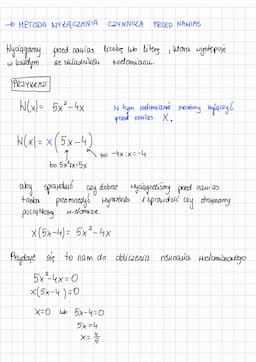 → METODA WYŁĄCZANIA CZYNNIKA PRZED NAWIAS
Wyciągamy przed nawias liczbę lub literę, która występuje
w każdym ze składników wielomianu.
PRZYKŁAD
W(x) = 5x² - 4x
W tym wielomianie możemy wyłączyć
przed nawias X.
W(x) = x(5x-4)
bo -4x:x=-4
bo 5x²:x=5x
aby sprawdzić czy dobrze wyciągnęliśmy przed nawias
trzeba przemnożyć wyrażenia i sprawdzić czy otrzymamy
początkowy wielomian.
x(5x-4) = 5x² - 4x
Przydaje się to nam do obliczenia równania wielomianowego
5x² - 4x = 0
x(5x-4) = 0
x=0 lub 5x-4=0
5x=4
x=4/5